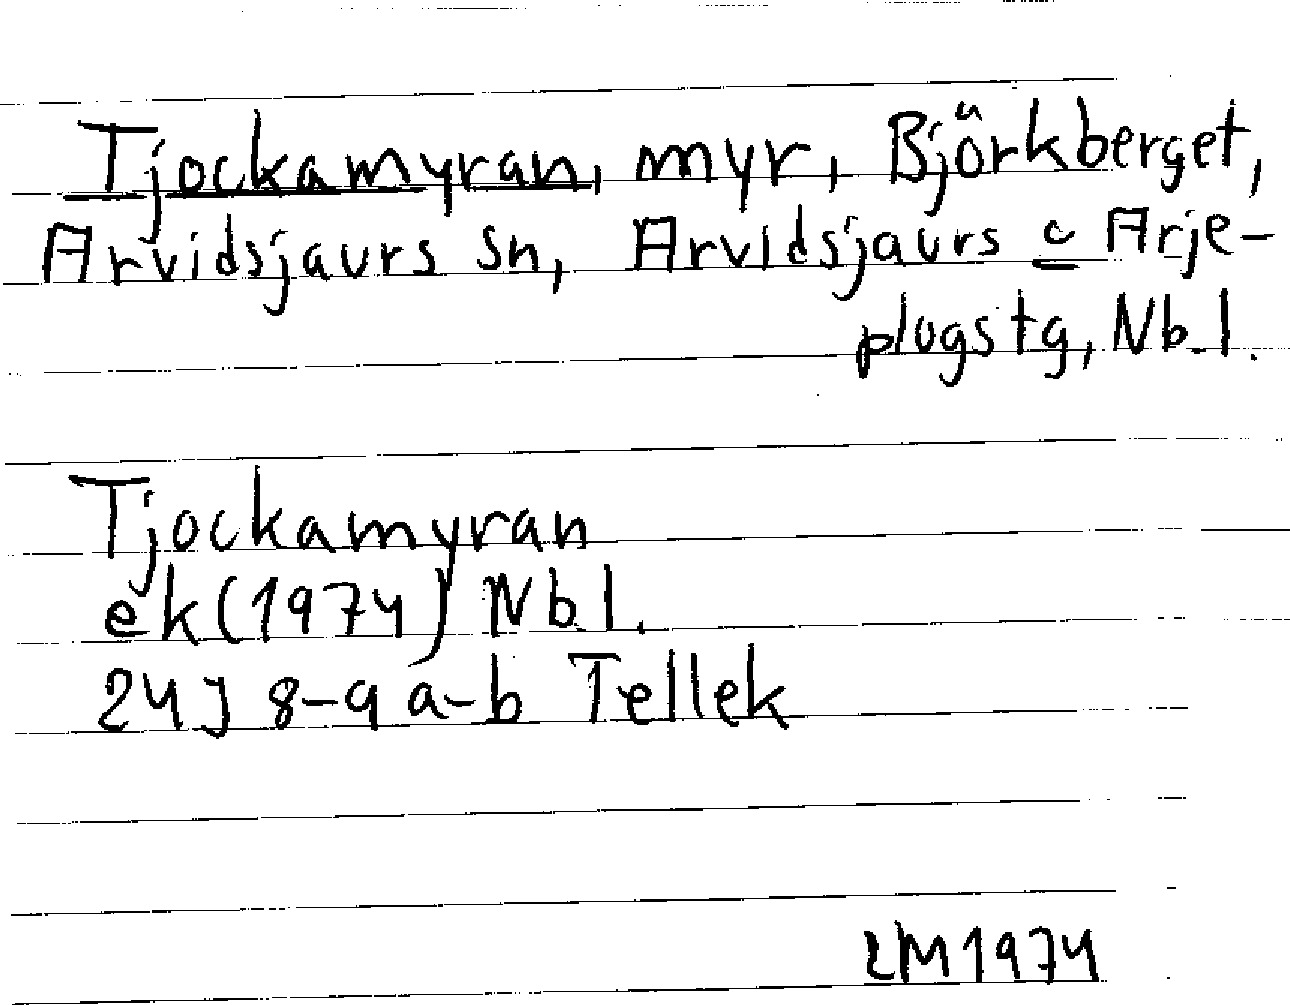 Tjockamyran, myr, Björkberget,
Arvidsjaurs sn, Arvidsjaurs o Arje-
plogs tg, Nb.l.
Tjockamyran
ek (1974) Nb.l.
24J 8-9 a-b Tellek
LM 1974